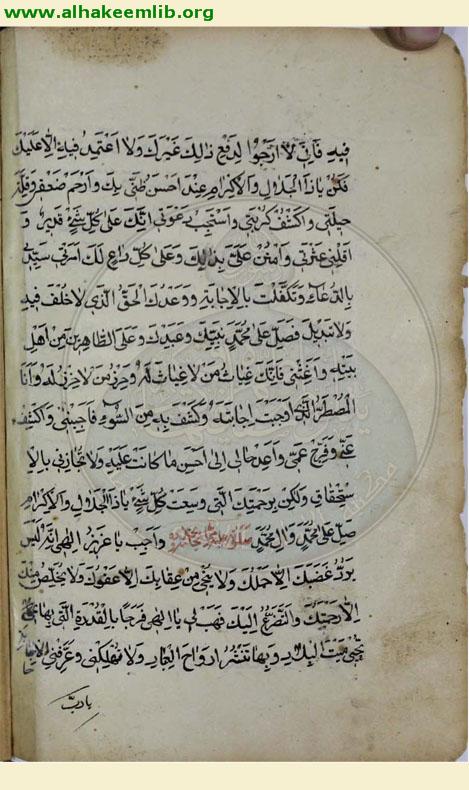 www.alhakeemlib.org
فيه فانى لا ارجوا لدفع ذلك غيرك ولا اعتمد فيه الا عليك
فكن ياذا الجلال والاكرام عند احسن ظنى بك وارحم ضعفى وقلة
حيلتى واكشف كربتى واستجب دعوتى انك على كل شئ قدير و
اقلنى عثرتى وامنن على بذلك وعلى كل داع لك امرتنى سيدى
بالدعاء وتكفلت بالاجابة ووعدك الحق الذى لا خلف فيه
ولا تبديل فصل على محمد نبيك وعبدك وعلى الطاهرين من اهل
بيته واغثنى فانك غياث من لا غياث له وحرز من لا حرز له وانا
المضطر الذى اوجبت اجابته وكشف ما به من السوء فاجبنى واكشف
عنى وفرج غمى واعد حالى الى احسن ما كانت عليه ولا تجازنى بالا
ستحقاق ولكن برحمتك التى وسعت كل شئ ياذا الجلال والاكرام
صل على محمد وال محمد واجب يا عزيز الهى انه ليس
يرد غضبك الا حلمك ولا ينجى من عقابك الا عفوك ولا يخلص منك
الا رحمتك والتضرع اليك فهب لى يا الهى فرجا بالقدرة التى بها
تحيى ميت البلاد وبها تنشر ارواح العباد ولا تهلكنى وعرفنى الاجابة
يا رب